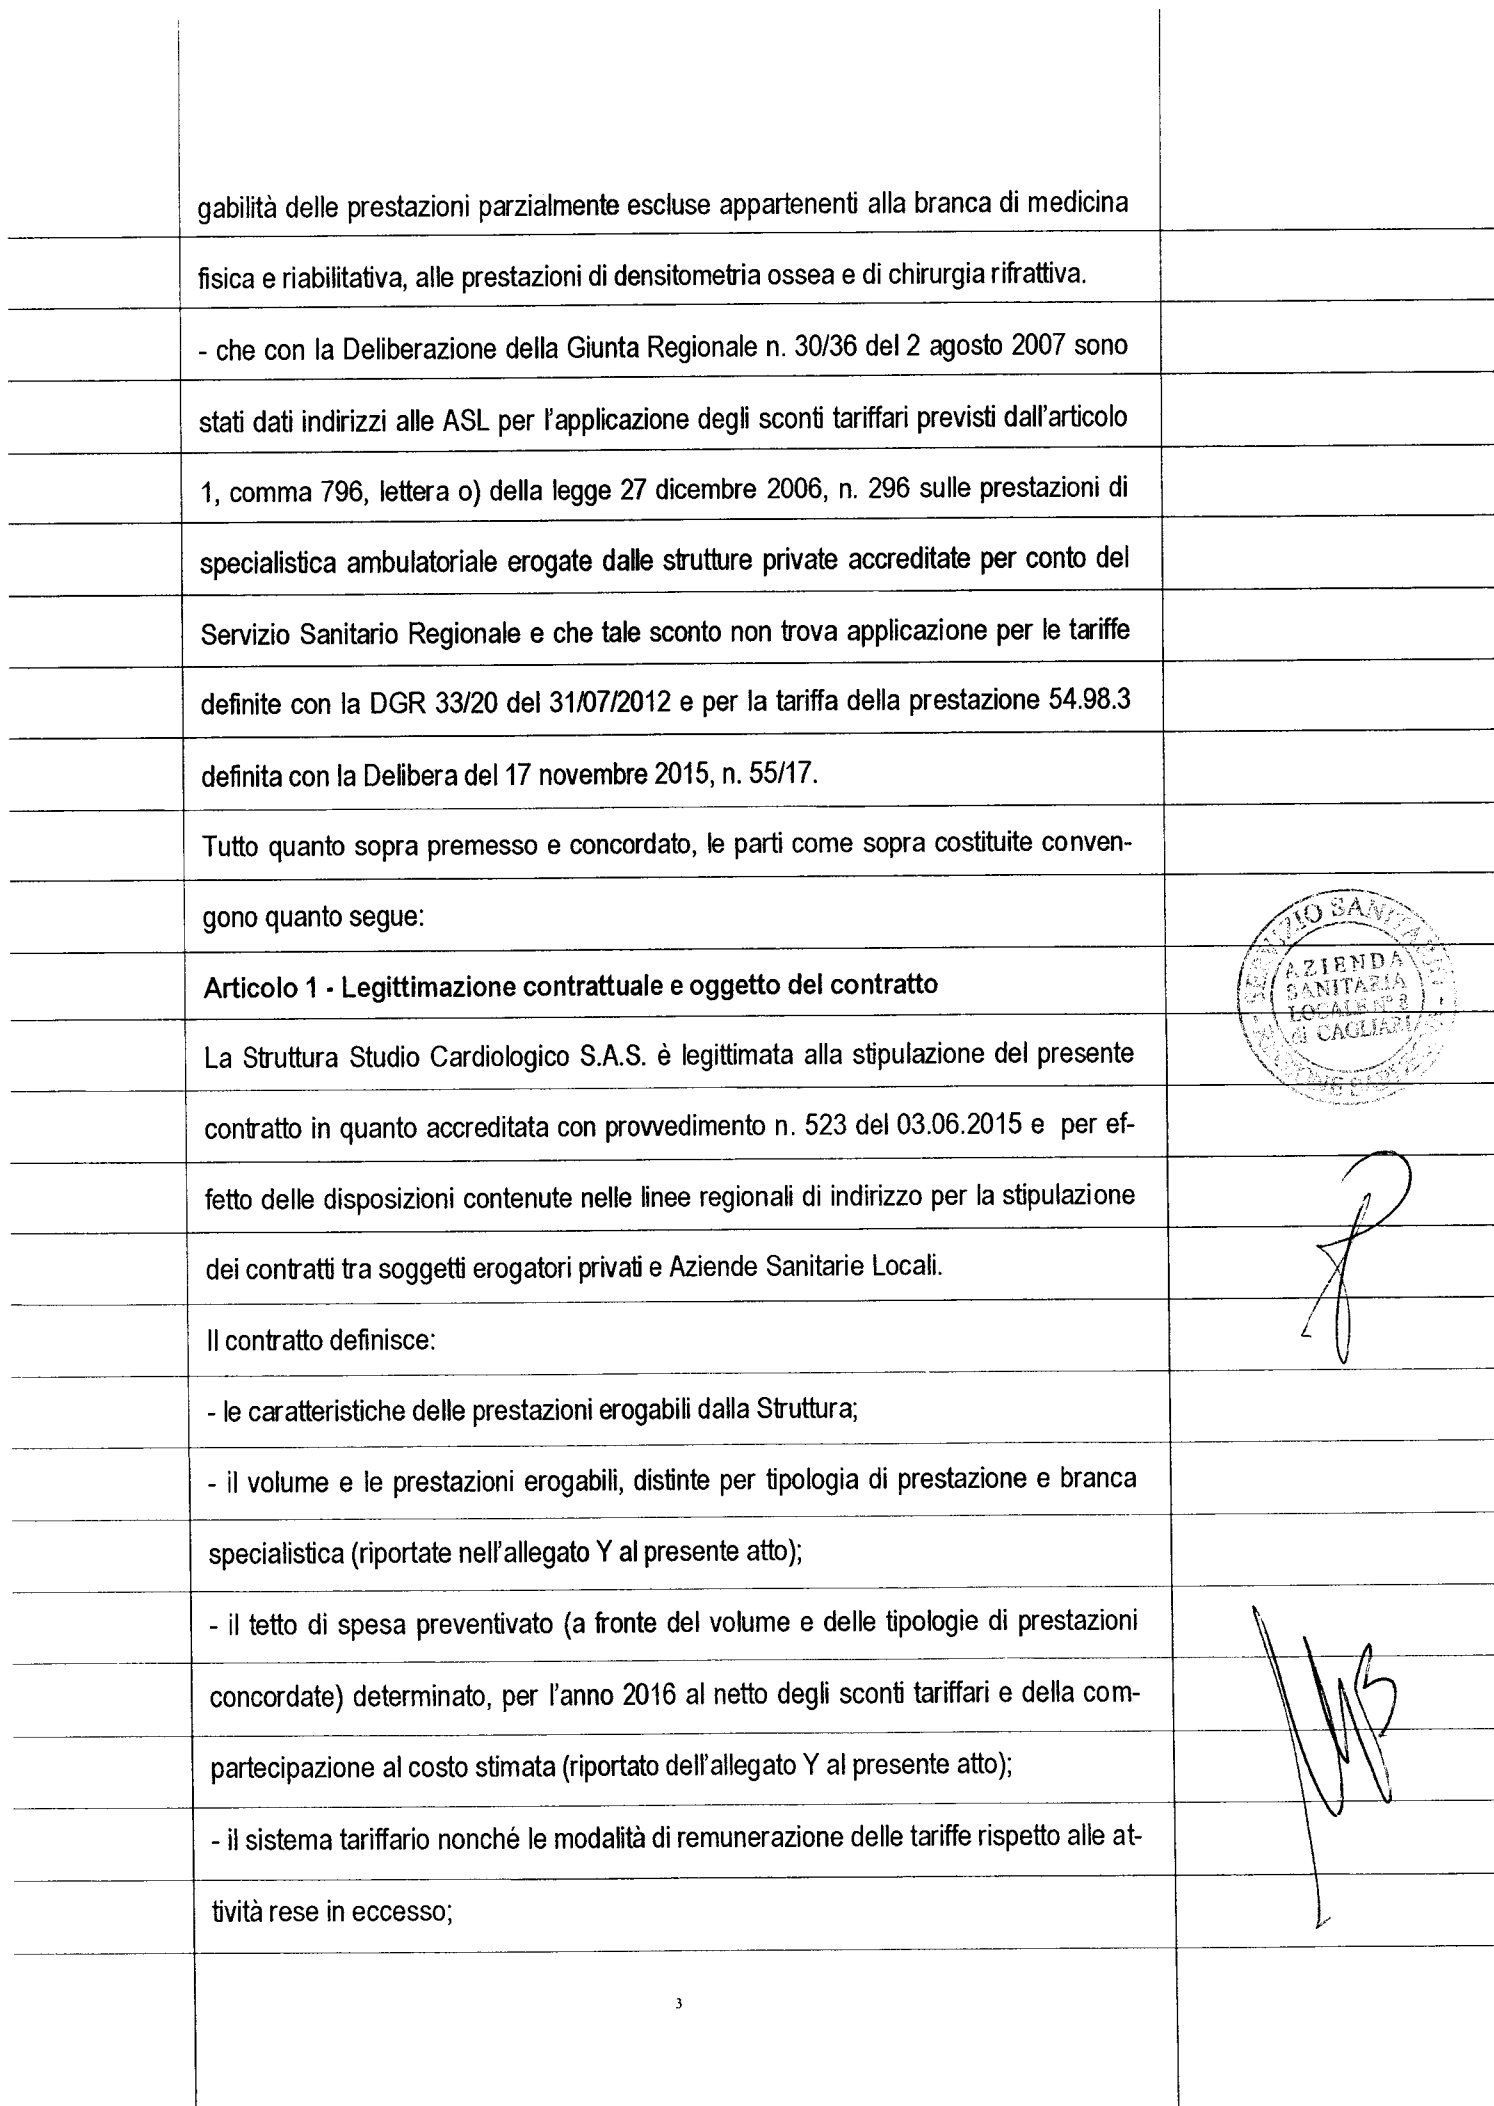 gabilità delle prestazioni parzialmente escluse appartenenti alla branca di medicina
fisica e riabilitativa, alle prestazioni di densitometria ossea e di chirurgia rifrattiva.
- che con la Deliberazione della Giunta Regionale n. 30/36 del 2 agosto 2007 sono
stati dati indirizzi alle ASL per l'applicazione degli sconti tariffari previsti dall'articolo
1, comma 796, lettera o) della legge 27 dicembre 2006, n. 296 sulle prestazioni di
specialistica ambulatoriale erogate dalle strutture private accreditate per conto del
Servizio Sanitario Regionale e che tale sconto non trova applicazione per le tariffe
definite con la DGR 33/20 del 31/07/2012 e per la tariffa della prestazione 54.98.3
definita con la Delibera del 17 novembre 2015, n. 55/17.
Tutto quanto sopra premesso e concordato, le parti come sopra costituite conven-
gono quanto segue:
Articolo 1 - Legittimazione contrattuale e oggetto del contratto
La Struttura Studio Cardiologico S.A.S. è legittimata alla stipulazione del presente
contratto in quanto accreditata con provvedimento n. 523 del 03.06.2015 e per ef-
fetto delle disposizioni contenute nelle linee regionali di indirizzo per la stipulazione
dei contratti tra soggetti erogatori privati e Aziende Sanitarie Locali.
Il contratto definisce:
- le caratteristiche delle prestazioni erogabili dalla Struttura;
- il volume e le prestazioni erogabili, distinte per tipologia di prestazione e branca
specialistica (riportate nell'allegato Y al presente atto);
- il tetto di spesa preventivato (a fronte del volume e delle tipologie di prestazioni
concordate) determinato, per l'anno 2016 al netto degli sconti tariffari e della com-
partecipazione al costo stimata (riportato dell'allegato Y al presente atto);
- il sistema tariffario nonché le modalità di remunerazione delle tariffe rispetto alle at-
tività rese in eccesso;
3
AZIENDA
SANITARIA
LOCALE N° 8
di CAGLIARI